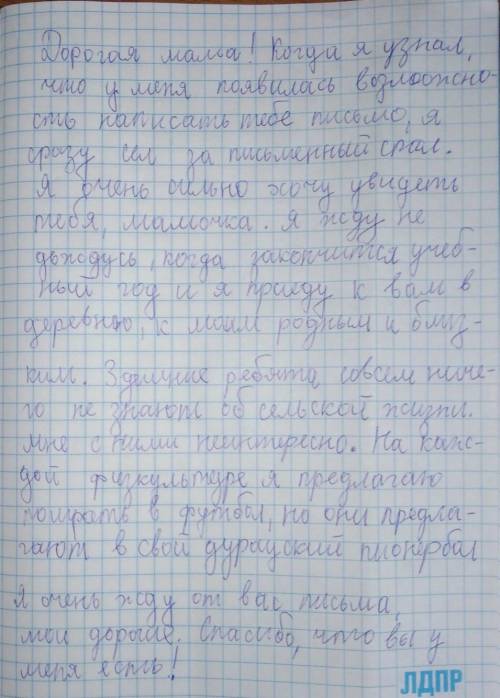 Дорогая мама! Когда я узнал,
что у меня появилась возможно-
сть написать тебе письмо, я
сразу сел за письменный стол.
Я очень сильно хочу увидеть
тебя, мамочка. Я жду не
дождусь, когда закончится учеб-
ный год и я приеду к вам в
деревню, к моим родным и близ-
ким. Здешние ребята совсем ниче-
го не знают об сельской жизни.
Мне с ними неинтересно. На каж-
дой физкультуре я предлагаю
поиграть в футбол, но они предла-
гают в свой дурацкий пионербол
Я очень жду от вас письма,
мои дорогие. Спасибо, что вы у
меня есть!
ЛДПР